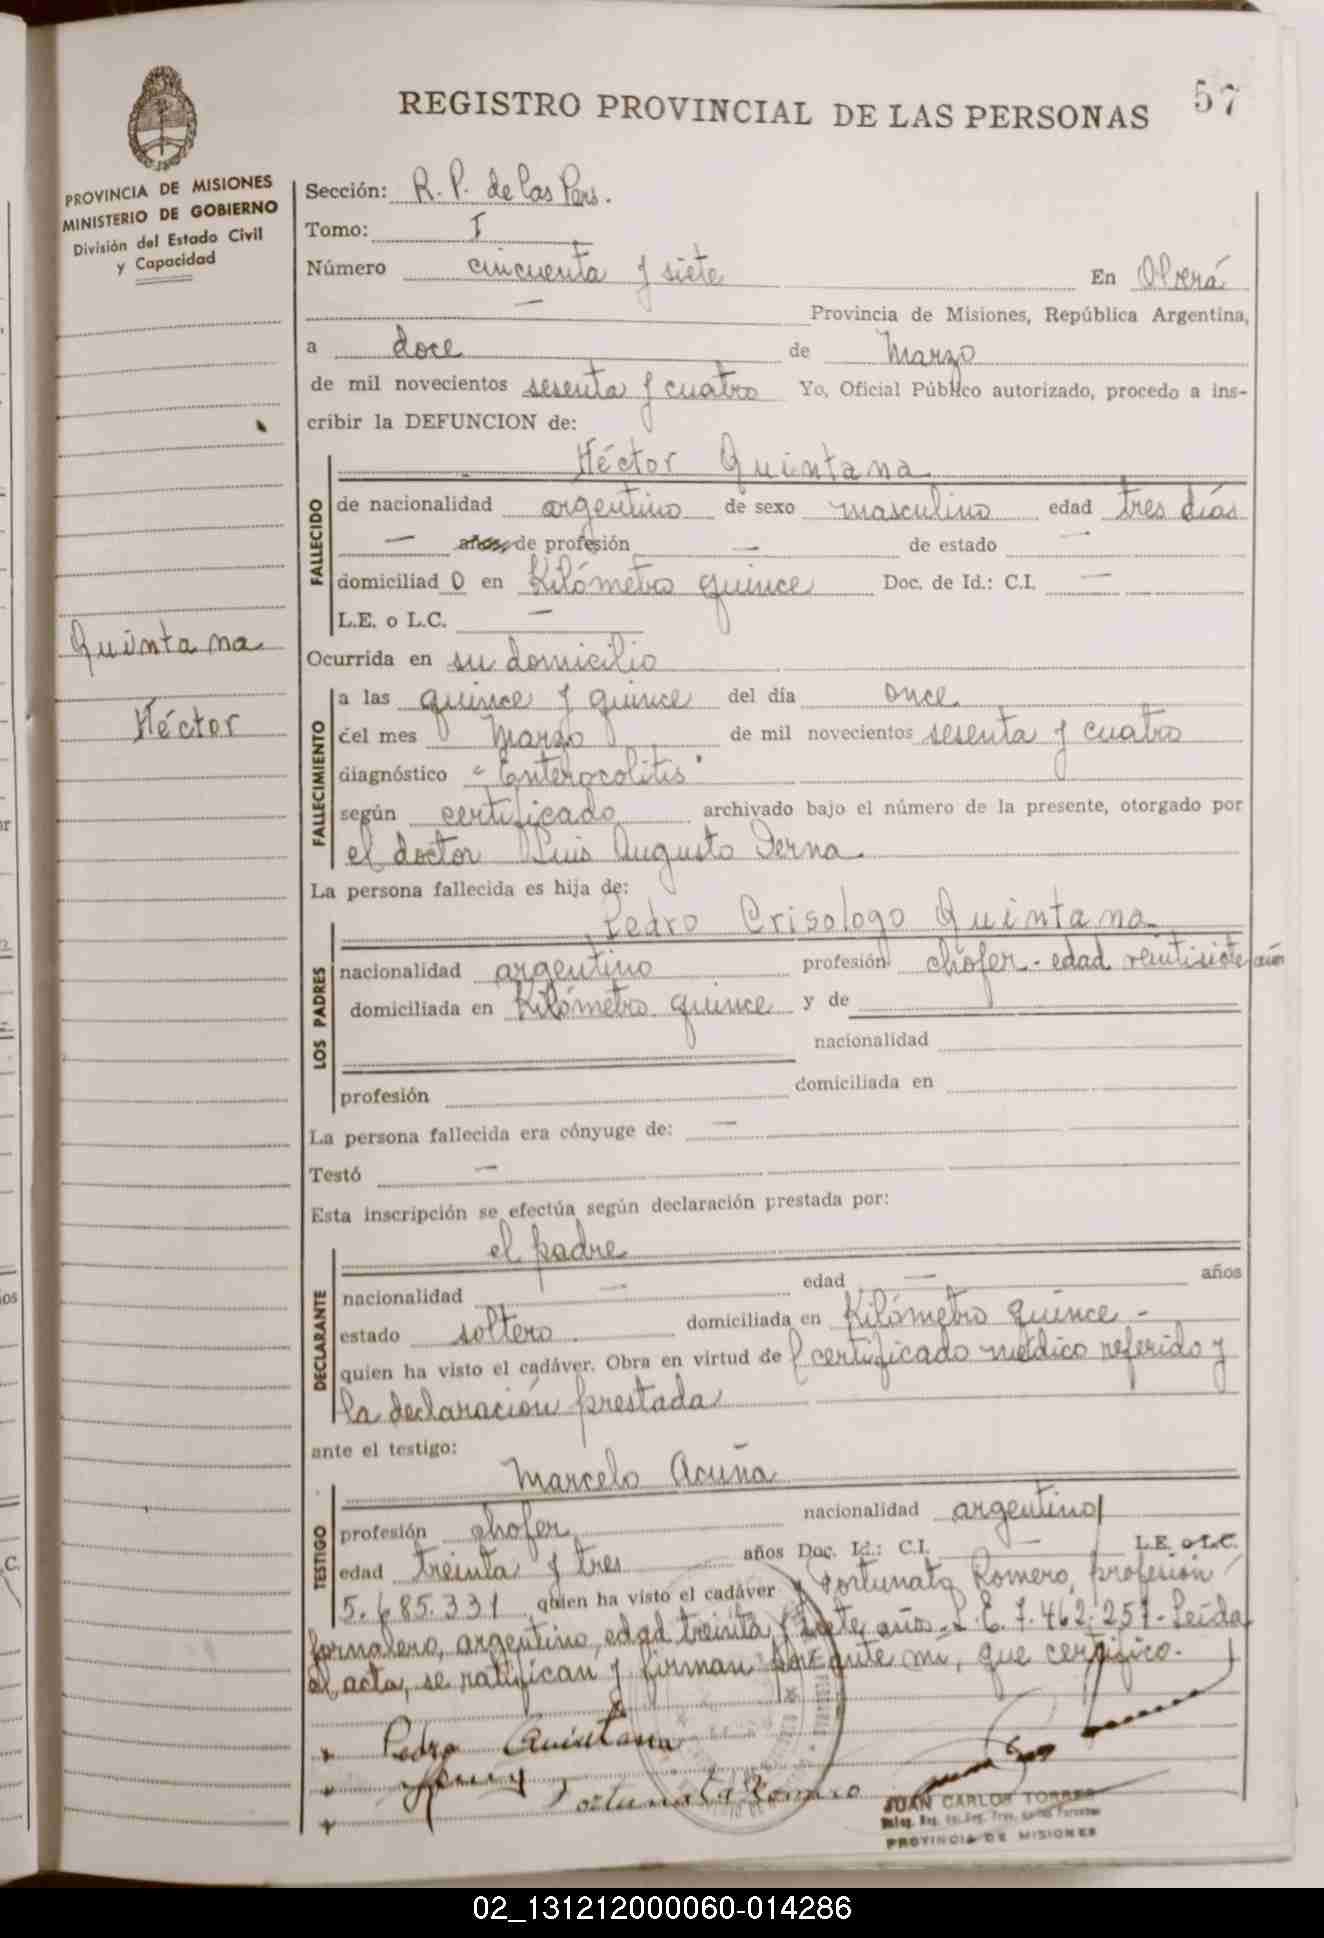 57
REGISTRO PROVINCIAL DE LAS PERSONAS
PROVINCIA DE MISIONES
MINISTERIO DE GOBIERNO
División del Estado Civil
y Capacidad
Quintana
Héctor
Sección: R. P. de las Pers.
Tomo: I
Número cincuenta y siete En Oberá
— Provincia de Misiones, República Argentina,
a doce de Marzo
de mil novecientos sesenta y cuatro Yo, Oficial Público autorizado, procedo a ins-
cribir la DEFUNCION de:
Héctor Quintana
FALLECIDO
de nacionalidad argentino de sexo masculino edad tres días
— años, de profesión — de estado —
domiciliad o en Kilómetro quince Doc. de Id.: C.I. —
L.E. o L.C. —
Ocurrida en su domicilio
FALLECIMIENTO
a las quince y quince del día once
del mes Marzo de mil novecientos sesenta y cuatro
diagnóstico "Enterocolitis"
según certificado archivado bajo el número de la presente, otorgado por
el doctor Luis Augusto Derna
La persona fallecida es hija de:
Pedro Crisologo Quintana
LOS PADRES
nacionalidad argentino profesión chofer - edad veintisiete años
domiciliada en Kilómetro quince y de
nacionalidad
profesión domiciliada en
La persona fallecida era cónyuge de: —
Testó —
Esta inscripción se efectúa según declaración prestada por:
el padre
DECLARANTE
nacionalidad — edad — años
estado soltero domiciliada en Kilómetro quince -
quien ha visto el cadáver. Obra en virtud de certificado médico referido y
la declaración prestada
ante el testigo:
Marcelo Acuña
TESTIGO
profesión chofer nacionalidad argentino
edad treinta y tres años Doc. Id.: C.I. — L.E. o L.C.
5.685.331 quien ha visto el cadáver y Fortunato Romero, profesión
jornalero, argentino, edad treinta y siete años - L. E. 7.462.257 - Leída
el acta, se ratifican y firman por ante mí, que certifico.
Pedro Quintana
Fortunato Romero
JUAN CARLOS TORRES
PROVINCIA DE MISIONES
02_131212000060-014286